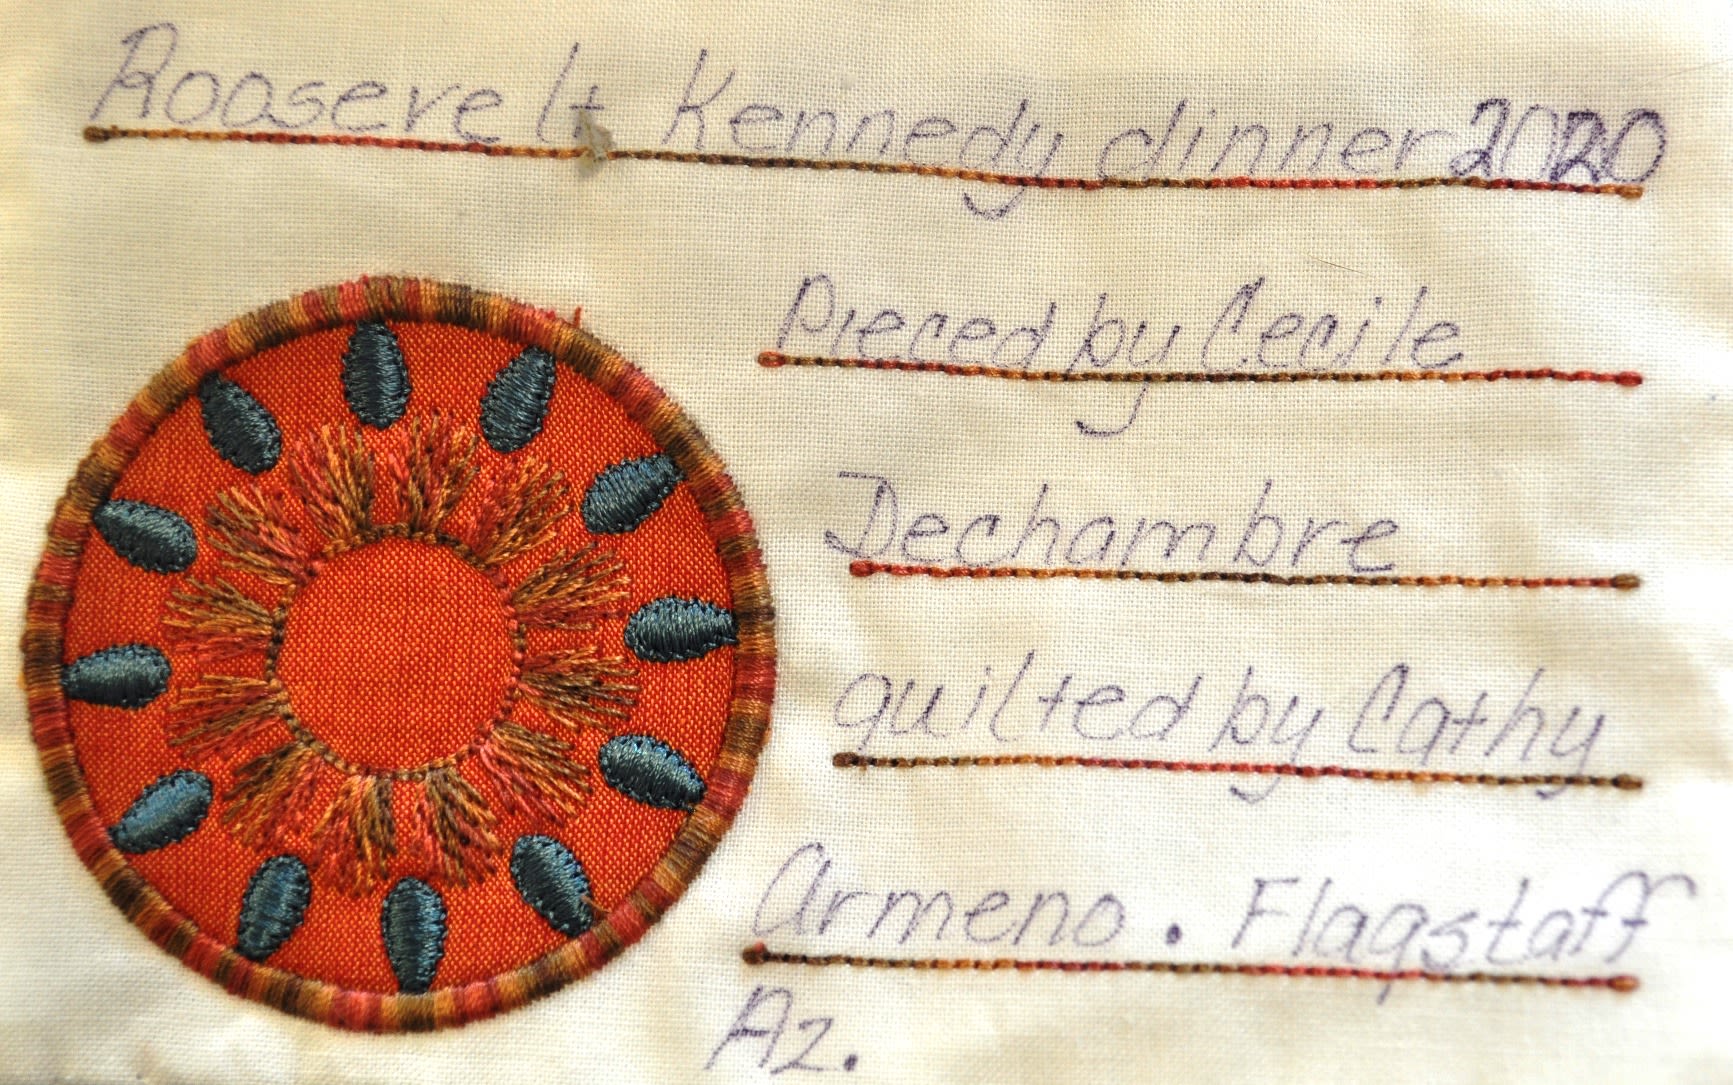 Roosevelt Kennedy dinner 2020
Pieced by Cecile
Dechambre
quilted by Cathy
Armeno. Flagstaff
Az.